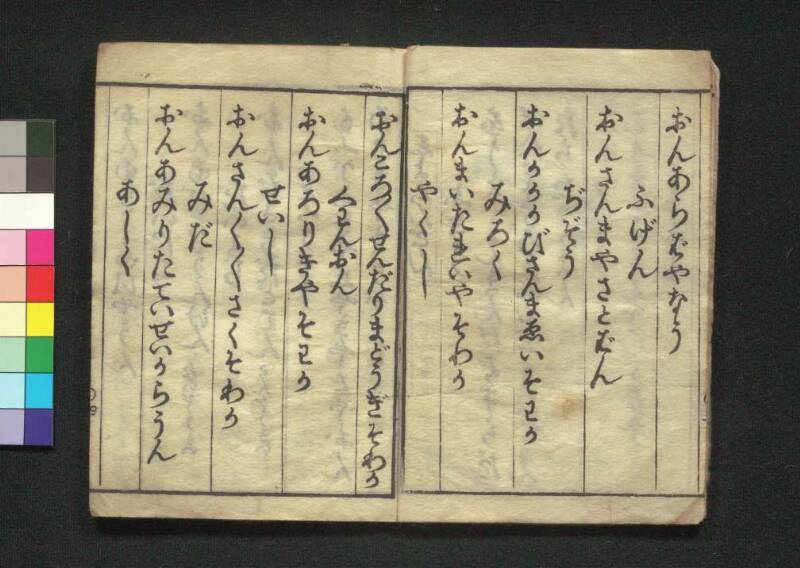 おんあらはしやなう
ふげん
おんさんまやさとばん
ぢざう
おんかかかびさんまゑいそわか
みろく
おんまいたれいやそわか
やくし
おんころ〱せんだりまどうぎそわか
くわんおん
おんあろりきやそわか
せいし
おんさん〱さくそわか
みだ
おんあみりたていせいからうん
あしく